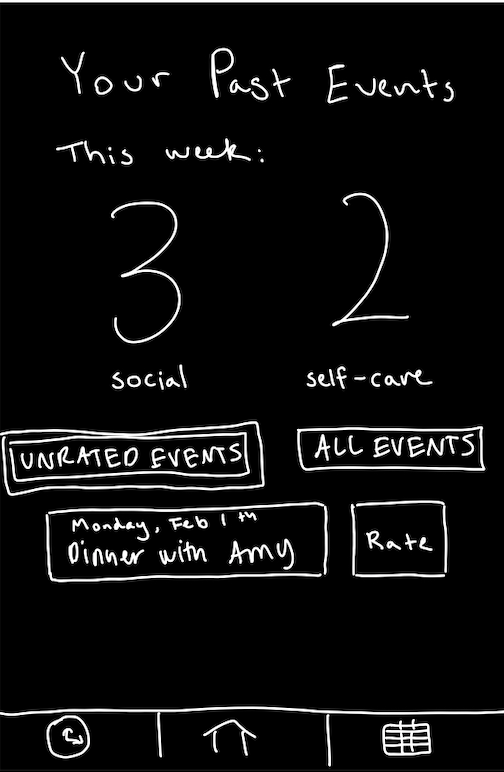 Your Past Events
This week:
3 2
social self-care
UNRATED EVENTS ALL EVENTS
Monday, Feb 1th
Dinner with Amy Rate